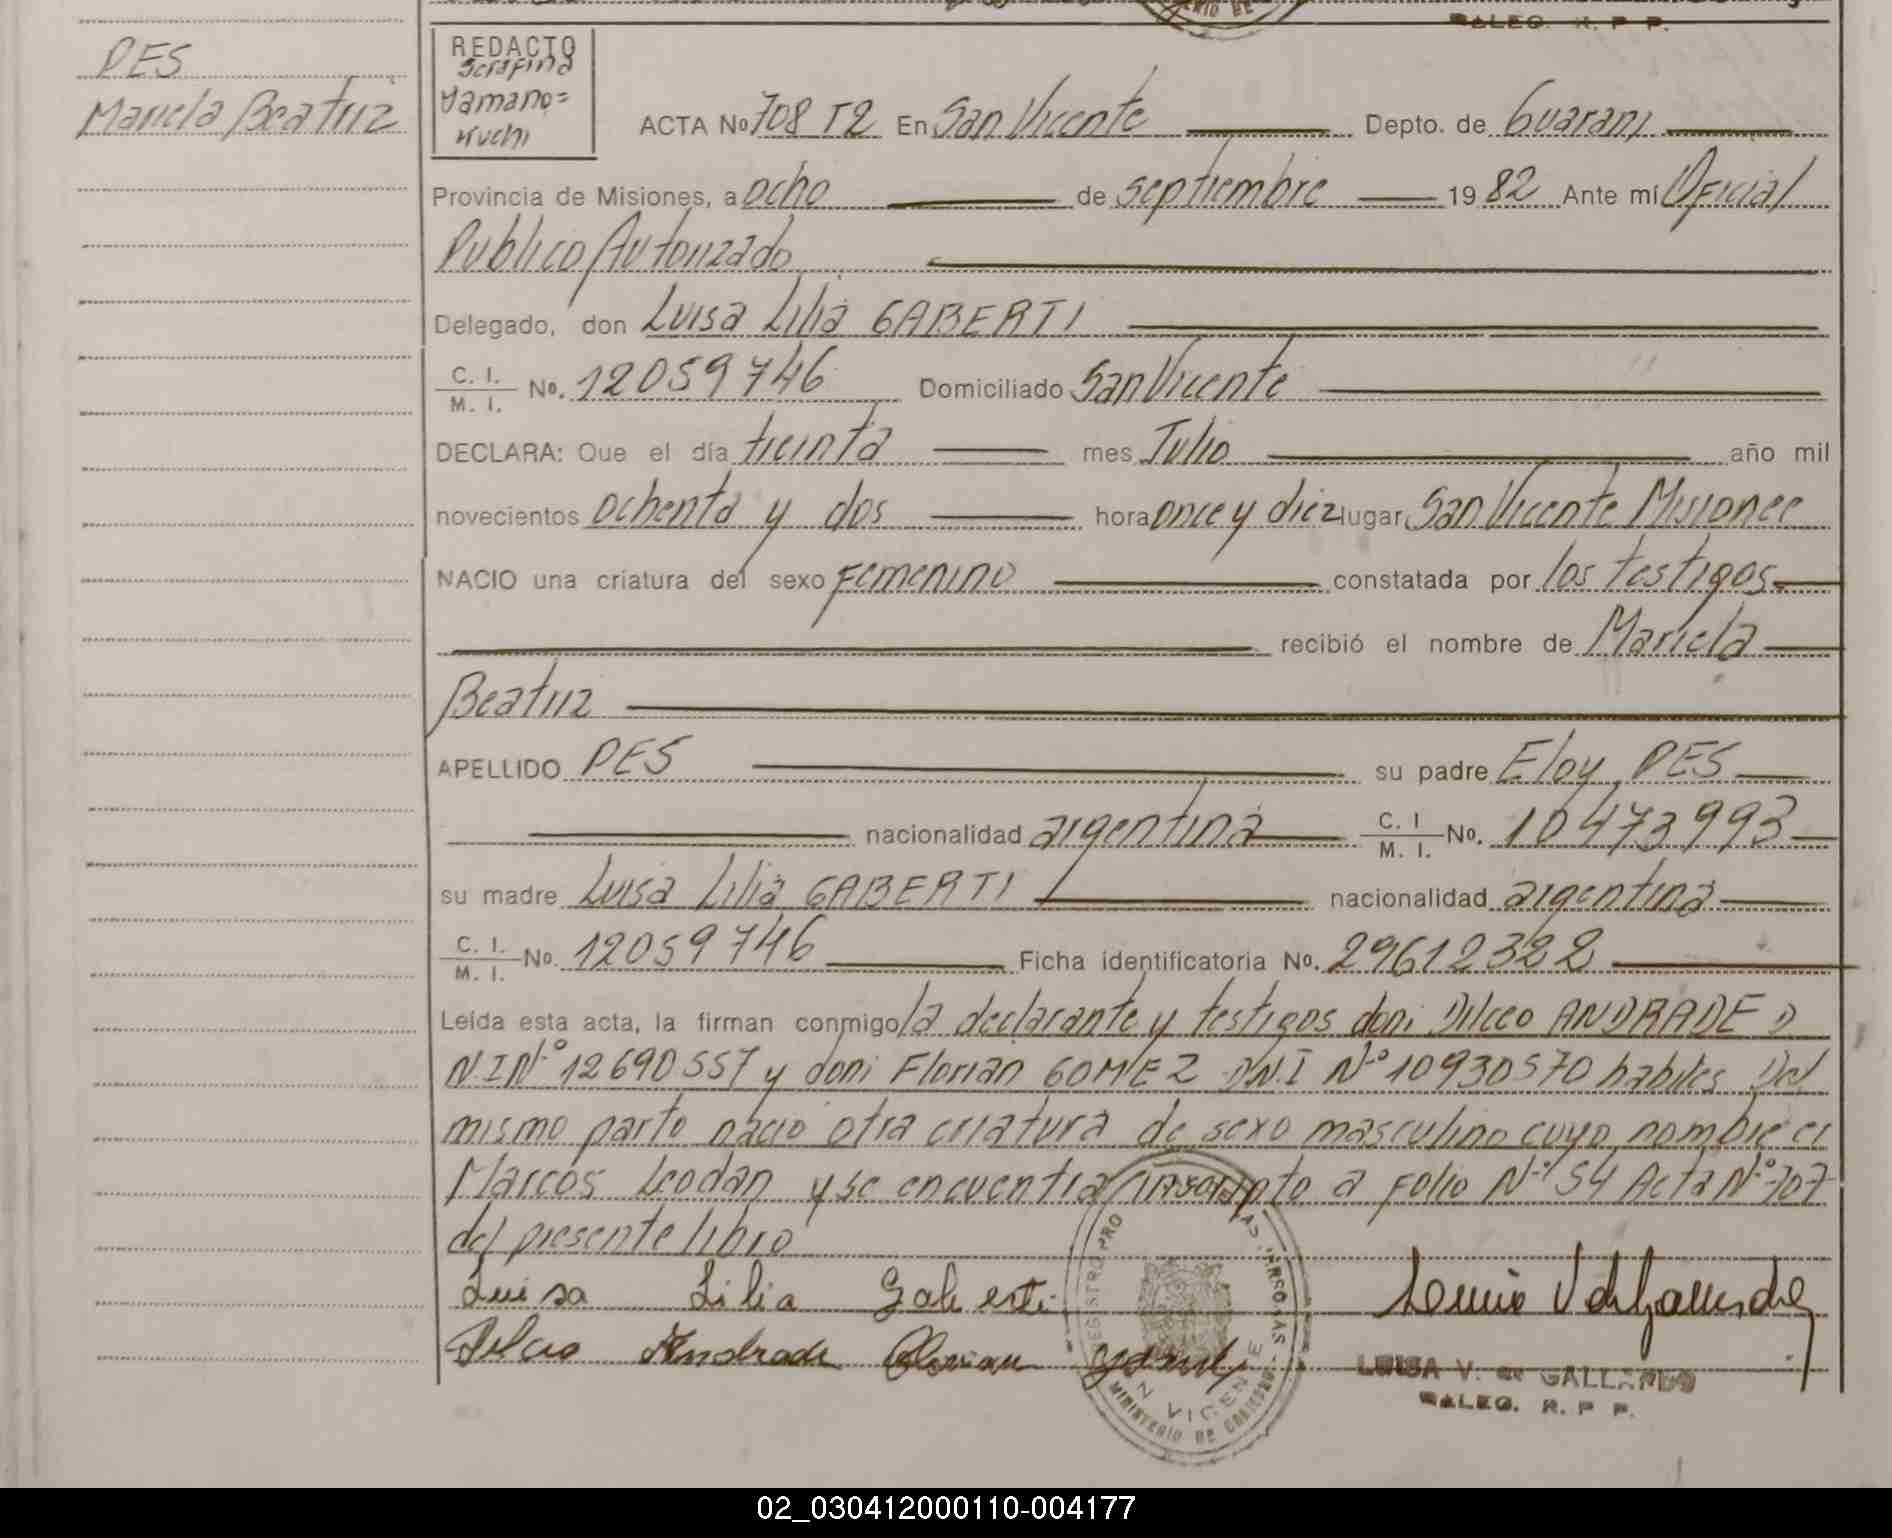 PES
Mariela Beatriz
REDACTO
Serafina
Yamano=
kuchi
ACTA No 708 T2 En San Vicente Depto. de Guarani
Provincia de Misiones, a ocho de septiembre 1982 Ante mí Oficial
Publico Autorizado
Delegado, don Luisa Lilia GABERTI
C. I.
M. I. No. 12059746 Domiciliado San Vicente
DECLARA: Que el día treinta mes Julio año mil
novecientos ochenta y dos hora once y diez lugar San Vicente Misiones
NACIO una criatura del sexo Femenino constatada por los testigos
recibió el nombre de Mariela
Beatriz
APELLIDO PES su padre Eloy PES
nacionalidad argentina C. I
M. I. No. 10473993
su madre Luisa Lilia GABERTI nacionalidad argentina
C. I.
M. I. No. 12059746 Ficha identificatoria No. 29612322
Leída esta acta, la firman conmigo la declarante y testigos don: Dilceo ANDRADE D
N.I Nº 12690557 y don: Florian GOMEZ D.N.I Nº 10930570 habiles Del
mismo parto nacio otra criatura de sexo masculino cuyo nombre es
Marcos Leodan y se encuentra inscripto a Folio Nº 54 Acta Nº 707
del presente libro
Luisa Lilia Gaberti
Andrade
LUISA V. de GALLARDO
DALEG. R. P P.
SAN VICENTE
MINISTERIO DE GOBIERNO
02_030412000110-004177